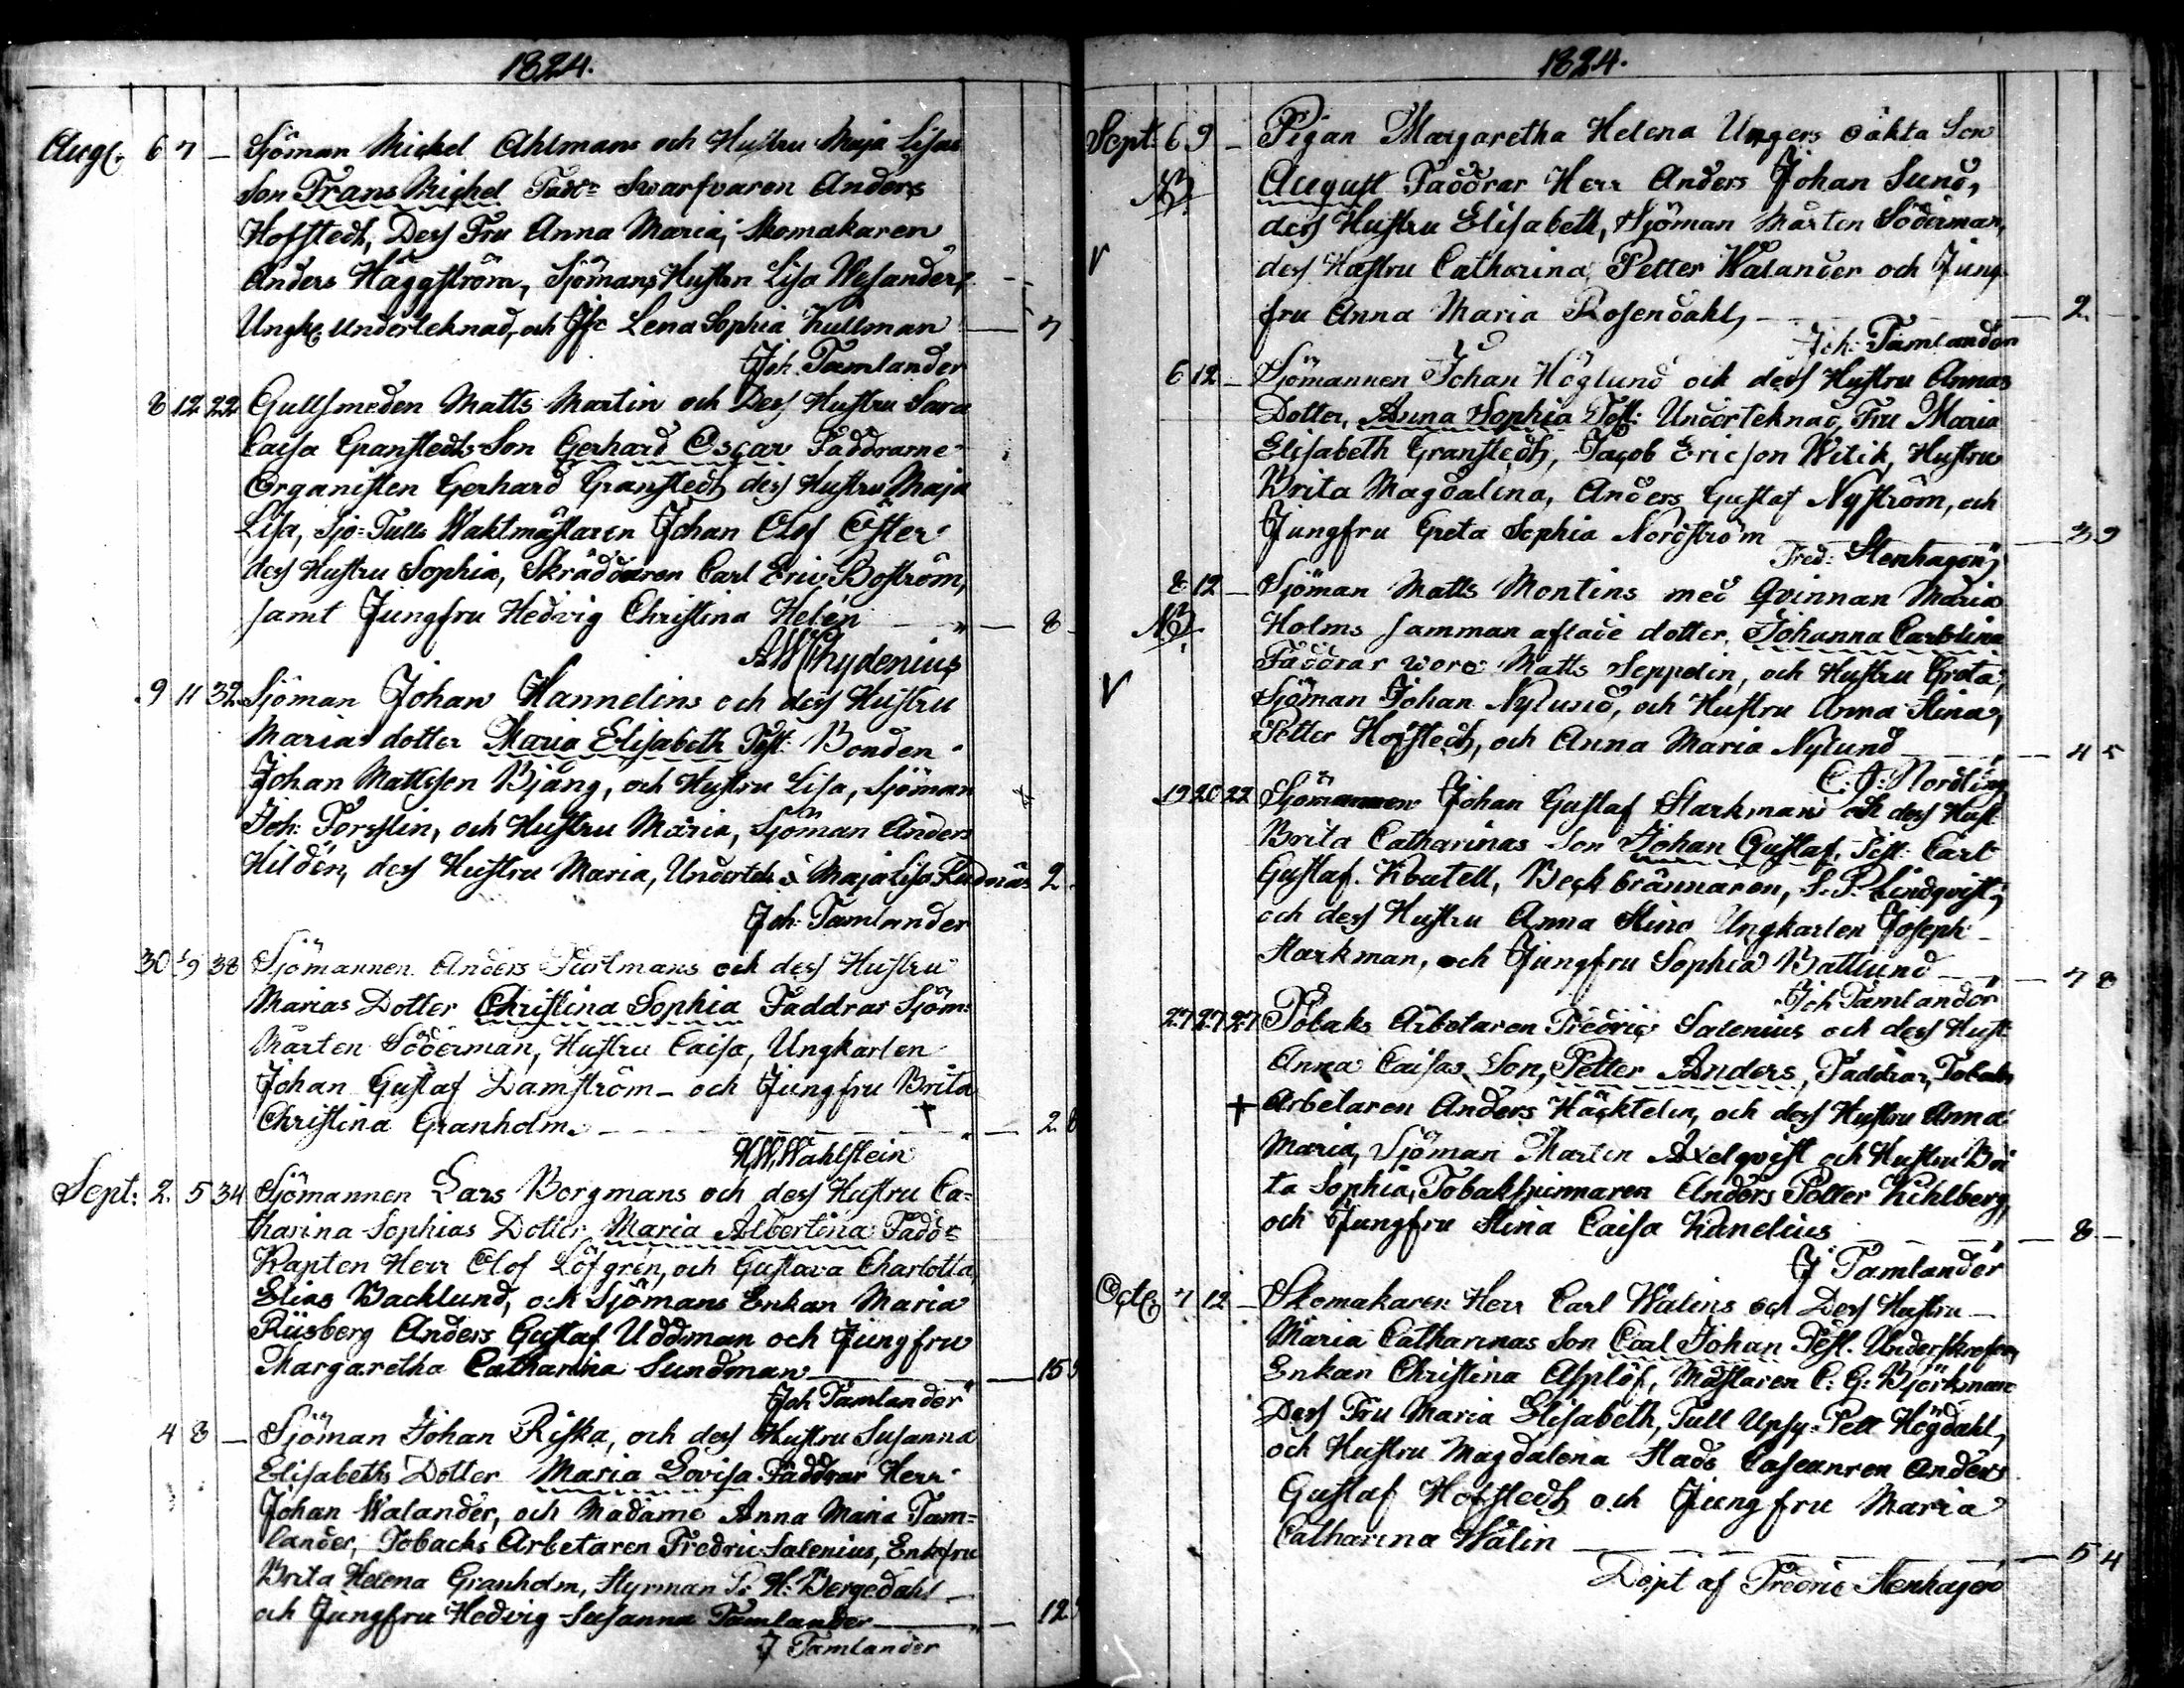 1824.
Aug. 6 7 — Sjöman Michel Ahlmans och Hustru Maja Lisas
Son Frans Michel Fadr: Swarfvaren Anders
Hofstedt, Dess Fru Anna Maria, Skomakaren
Anders Häggström, Sjömans Hustrun Lisa Wesanders
Ungk. underteknad, och Jfr Lena Sophia Kullman — 7
Joh. Tamlander
8 12 22 Gullsmeden Matts Martin och Dess Hustru Sara
Caisa Granstedts Son Gerhard Oscar Faddrarne
Organisten Gerhard Granstedt, dess Hustru Maja
Lisa, Sjö-Tulls Waktmästaren Johan Olof Öster
dess Hustru Sophia, Skräddaren Carl Eric Boström,
samt Jungfru Hedvig Christina Helén — 8 —
AWChydenius
9 11 32 Sjöman Johan Hannelins och dess Hustru
Marias dotter Maria Elisabeth Test: Bonden
Johan Mattsson Bjäng, och Hustru Lisa, Sjöman
Joh: Forsslin, och Hustru Maria, Sjöman Anders
Hildén, dess Hustru Maria, Undertek: & Maja Lisa Rudnäs 2.
Joh: Tamlander
30 5/9 38 Sjömannen Anders Portmans och dess Hustru
Marias Dotter Christina Sophia Faddrar Sjöm:
Mårten Söderman, Hustru Caisa, Ungkarlen
Johan Gustaf Damström — och Jungfru Brita
Christina Granholm. — † — 2 8
H.W.Wahlstein
Sept: 2. 5 34 Sjömannen Lars Borgmans och dess Hustru Ca=
tharina Sophias Dotter Maria Albertina Faddr:
Kapten Herr Olof Löfgren, och Gustava Charlotta,
Elias Backlund, och Sjömans Enkan Maria
Riisberg Anders Gustaf Uddman och Jungfru
Margaretha Catharina Sundman — 15
Joh Tamlander
4 8 — Sjöman Johan Riska, och dess Hustru Susanna
Elisabeths Dotter Maria Lovisa Faddrar Herr
Johan Walander, och Madame Anna Maria Tam=
lander, Tobacks Arbetaren Fredric Salenius, Enkefru
Brita Helena Granholm, Styrman P: H: Bergedahl —
och Jungfru Hedvig Susanna Tamlander — 12
J Tamlander
1824.
Sept: 6 9 — Pigan Margaretha Helena Ungers oäkta Son
NB August Faddrar Herr Anders Johan Sund,
dess Hustru Elisabeth, Sjöman Mårten Söderman,
V dess Hustru Catharina, Petter Walander och Jung-
fru Anna Maria Rosendahl, — 2 —
Joh: Tamlander
6 12 — Sjömannen Johan Höglund och dess Hustru Annas
Dotter, Anna Sophia Test: Underteknad, Fru Maria
Elisabeth Granstedt, Jacob Ericson Witik, Hustru
Brita Magdalina, Anders Gustaf Nyström, och
Jungfru Greta Sophia Nordström — 3 9
Fred: Stenhagen
8 12 — Sjöman Matts Montins med Qvinnan Maria
NB Holms samman aflade dotter, Johanna Carolina
Faddrar wore Matts Seppelin, och Hustru Greta,
V Sjöman Johan Nylund, och Hustru Anna Stina,
Petter Hofstedt, och Anna Maria Nylund — 4 5
C. J. Nordling
19 20 22 Sjömannen Johan Gustaf Starkmans och dess Hust
Brita Catharinas Son Johan Gustaf, Test: Carl
Gustaf, Beckbrännaren, S. P: Lindqvist,
och dess Hustru Anna Stina Ungkarlen Joseph
Starkman, och Jungfru Sophia Battlund — 7 8
Joh Tamlander
27 27 27 Tobaks Arbetaren Fredric Salenius och dess Hust
Anna Caisas Son, Petter Anders, Faddrar, Tobaks
† Arbetaren Anders Häcktelin, och dess Hustru Anna
Maria, Sjöman Marten Axelqvist och Hustru Bri
ta Sophia, Tobakspinnaren Anders Petter Kihlberg,
och Jungfru Stina Caisa Kanelius — 8 —
J Tamlander
Oct. 7 12 — Skomakaren Herr Carl Walins och Dess Hustru —
Maria Catharinas Son Carl Johan Test. Underskrefven
Enkan Christina Asplöf, Mästaren C: G: Björkman
Dess Fru Maria Elisabeth, Tull Upsy: Pett Högdahl,
och Hustru Magdalena Stads Anders
Gustaf Hofstedt och Jungfru Maria
Catharina Walin — 5 4
Döpt af Fredric Stenhagen